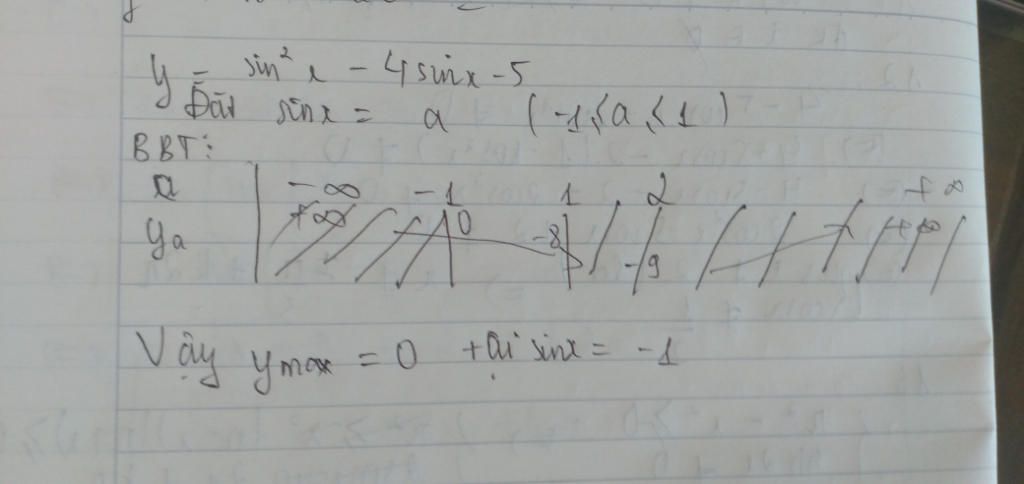 y = sin² x - 4 sinx - 5
Đặt sinx = a (-1 ≤ a ≤ 1)
BBT:
a -∞ -1 1 2 +∞
yₐ +∞ 0 -8 -9 +∞
Vậy y max = 0 tại sinx = -1